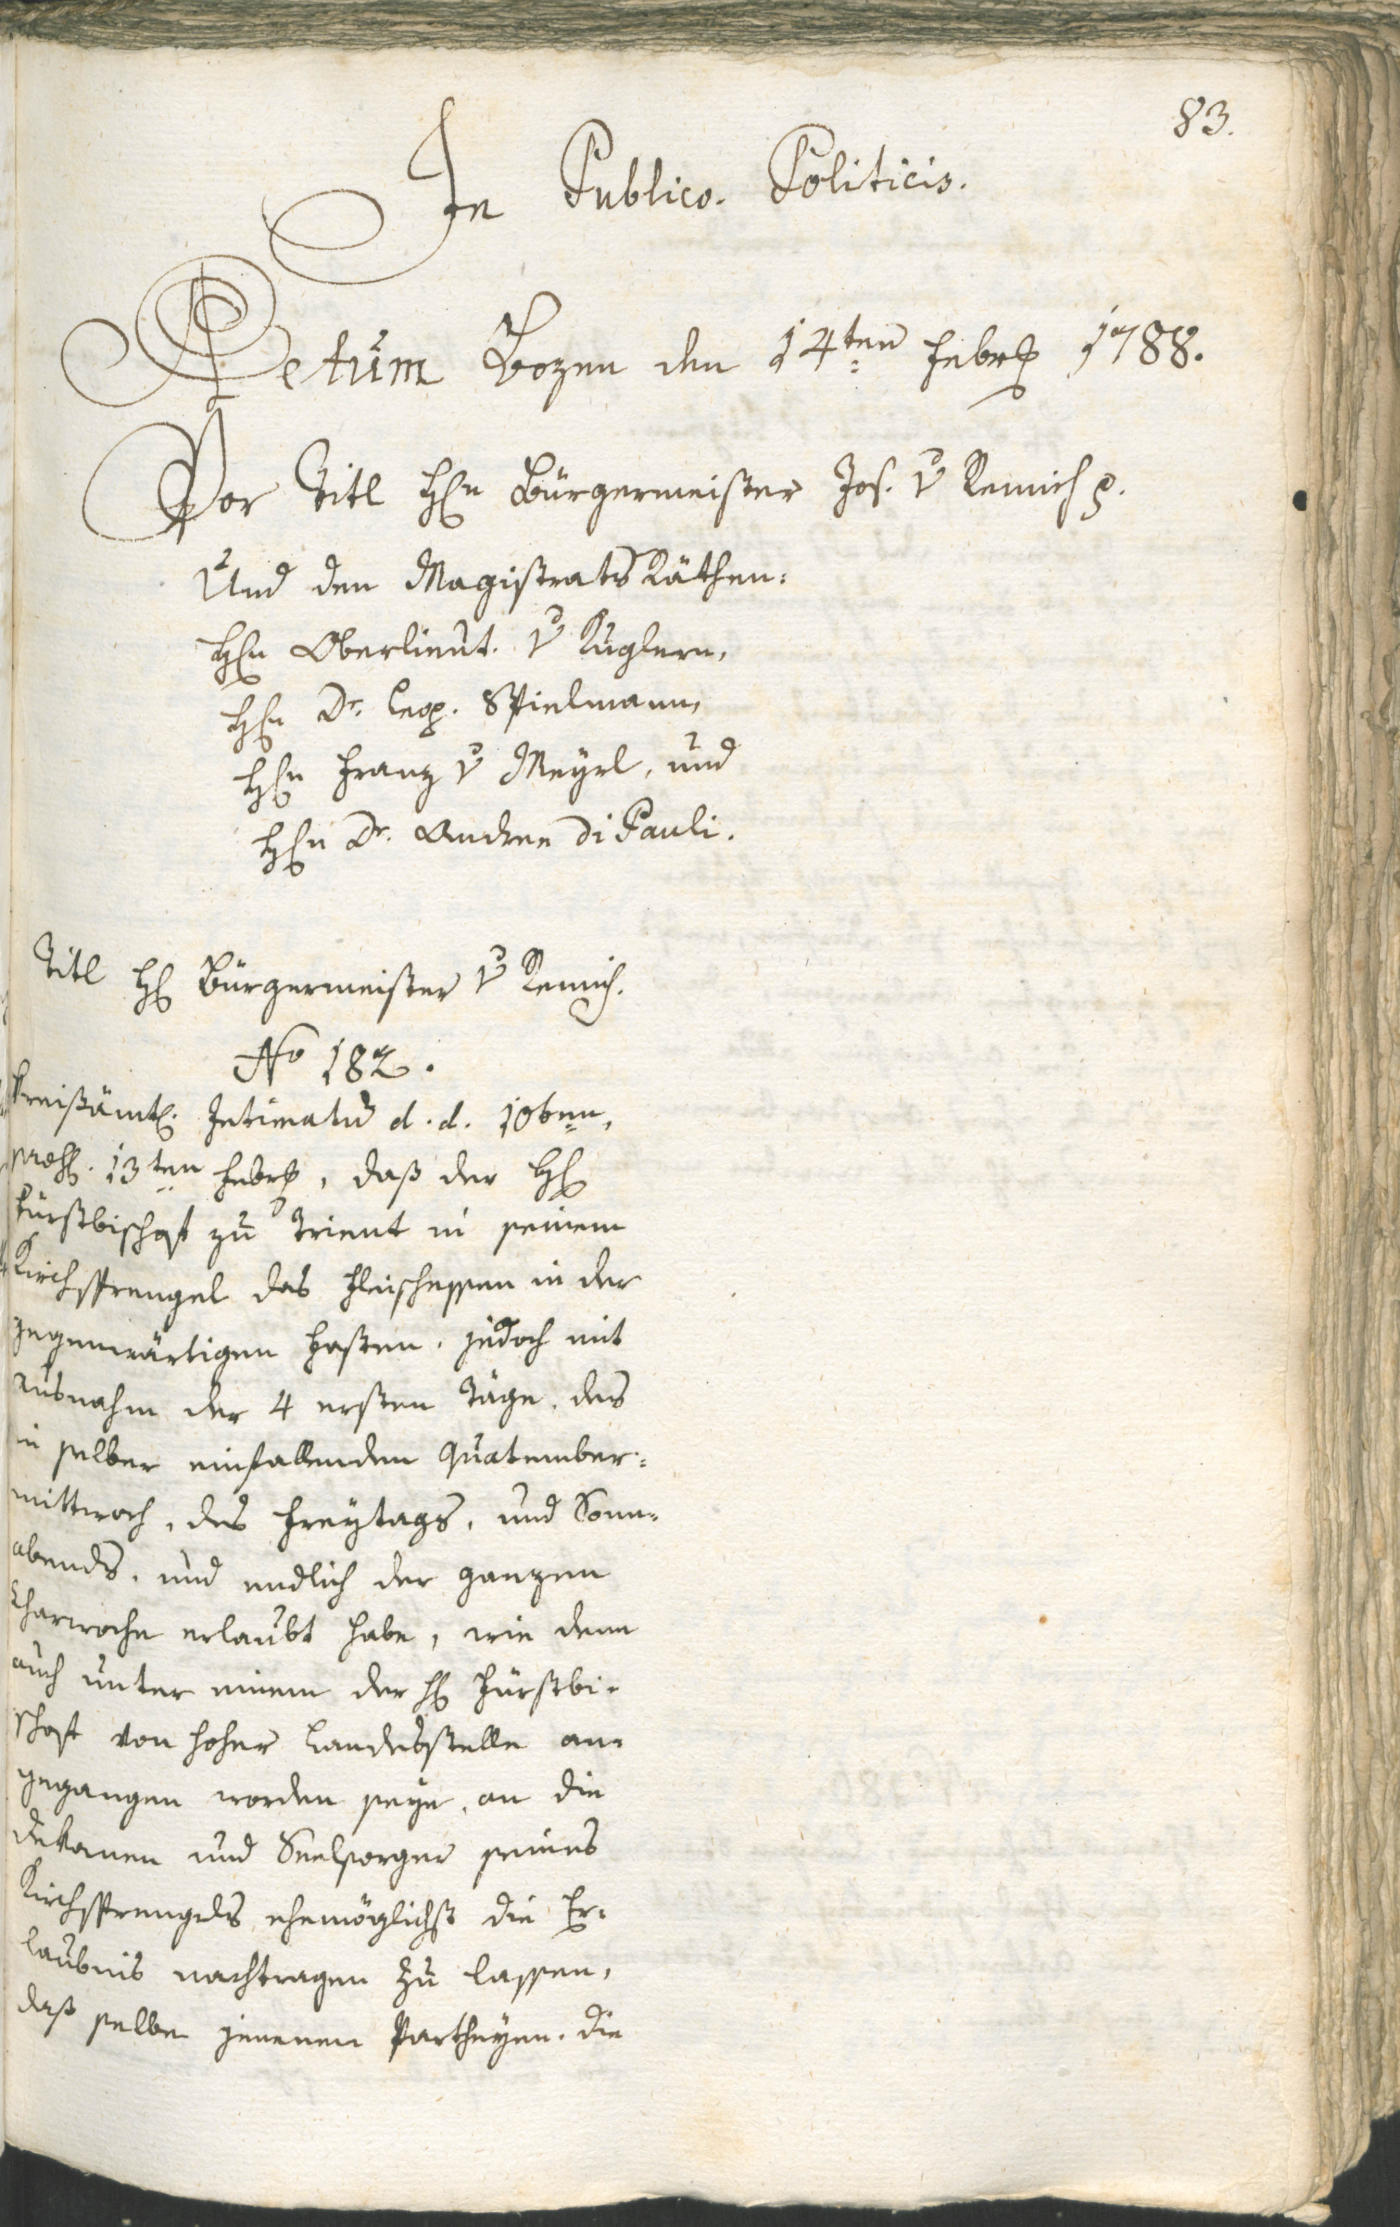 83.
In Publico. Politicis.
Actum Bozen den 14ten Febr. 1788.
Vor Titl Hrn Bürgermeister Jos. v Remich p.
Und den Magistrats Räthen:
Hrn Oberlieut. v Kuglern,
Hrn Dr. Leop. Spielmann,
Hrn Franz v Meyrl, und
Hrn Dr. Andree Di Pauli.
Titl Hr Bürgermeister v Remich.
No 182.
Kreißämtl. Intimatum d. d. 10ten,
präs. 13ten Febr., daß der Hr
Fürstbischof zu Trient in seinem
Kirchsprengel das Fleischessen in der
gegenwärtigen Fasten, jedoch mit
Ausnahm der 4 ersten Täge, des
in selber einfallenden Quatember=
mittwoch, des Freytags, und Sonn=
abends, und endlich der ganzen
Charwoche erlaubt habe, wie denn
auch unter einem der Hr Fürstbi=
schof von hoher Landesstelle an=
gegangen worden seye, an die
Dekanen und Seelsorger seines
Kirchsprengels ehemöglichst die Er=
laubnis nachtragen zu lassen,
daß selbe jenenen Partheyen, die